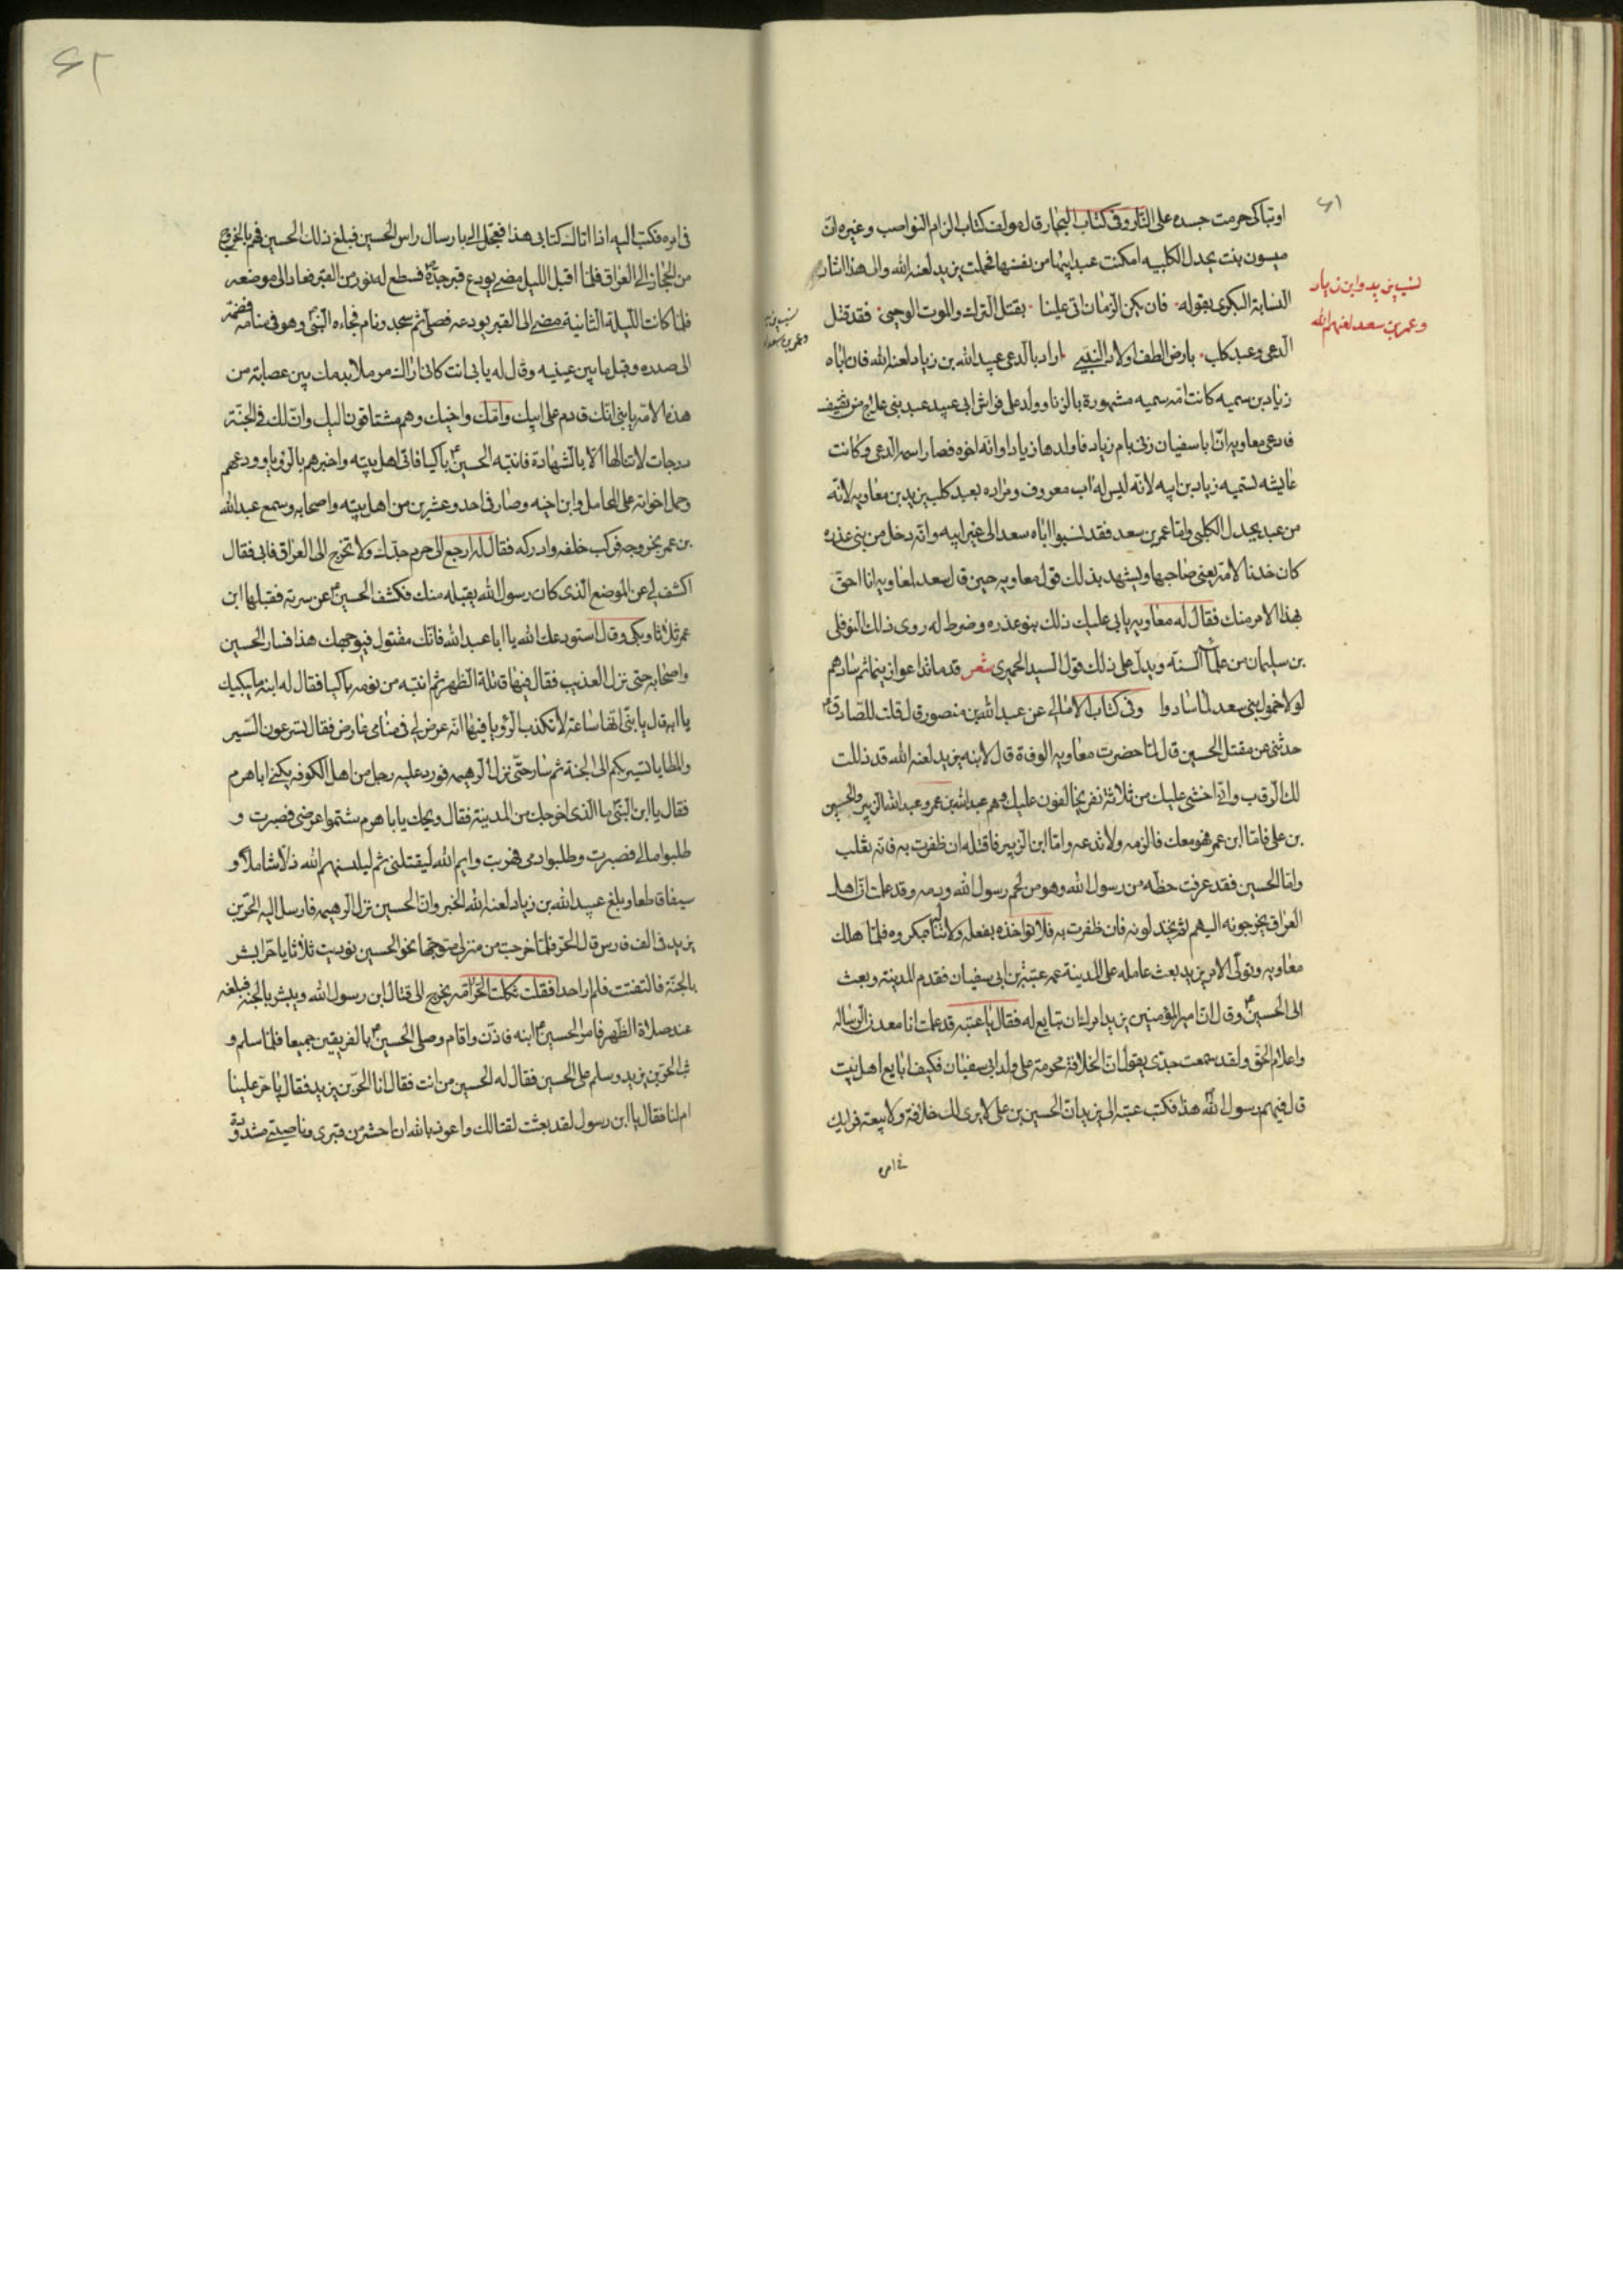 ٤١
او تباكى حرمت جسده على النار وفى كتاب البحار قال مولف كتاب الزام النواصب وغيره ان
ميسون بنت بجدل الكلبيه امكنت عبد ابيها من نفسها فحملت بيزيد لعنه الله والى هذا اشار
النسابة البكرى بقوله فان يكن الزمان اتى علينا بقتل الترك والموت الوحى فقد قتل
الدعى وعبد كلب بارض الطف اولاد النبى اراد بالدعى عبيد الله بن زياد لعنه الله فان اباه
زياد بن سميه كانت امه سميه مشهورة بالزنا وولد على فراش ابى عبيد عبد بنى علاج من ثقيف
فادعى معاويه ان ابا سفيان زنى بام زياد فاولدها زيادا وانه اخوه فصار اسمه الدعى وكانت
عايشه تسميه زياد بن ابيه لانه ليس له اب معروف ومراده بعبد كلب يزيد بن معاويه لانه
من عبد بجدل الكلبى واما عمر بن سعد فقد نسبوا اباه سعد الى غير ابيه وانه رجل من بنى عذره
كان خدنا لامه يعنى صاحبها ويشهد بذلك قول معاويه حين قال سعد لمعاويه انا احق
بهذا الامر منك فقال له معاويه يابى عليك ذلك بنو عذره وضرط له روى ذلك النوفلى
بن سليمان من علماء السنه ويدل على ذلك قول السيد الحميرى شعر قدما تداعوا زنيما ثم سادهم
لولا خمول بنى سعد لما سادوا وفى كتاب الامالى عن عبد الله بن منصور قال قلت للصادق
حدثنى عن مقتل الحسين قال لما حضرت معاويه الوفاة قال لابنه يزيد لعنه الله قد ذللت
لك الرقاب وانى اخشى عليك من ثلاثة نفر يخالفون عليك وهم عبد الله بن عمر وعبد الله الزبير والحسين
بن على فاما ابن عمر فهو معك فالزمه ولا تدعه واما ابن الزبير فاقتله ان ظفرت به فانه
واما الحسين فقد عرفت حظه من رسول الله وهو من لحم رسول الله ودمه وقد علمت ان اهل
العراق يخرجونه اليهم ثم يخذلونه فان ظفرت به فلا تواخذه بفعله ولا تنله بمكروه فلما هلك
معاويه وتولى الامر يزيد بعث عامله على المدينة عمه عتبة بن ابى سفيان فقدم المدينة وبعث
الى الحسين وقال ان امير المؤمنين يزيد امرك ان تبايع له فقال يا عتبه قد علمت انا معدن الرساله
واعلام الحق ولقد سمعت جدى يقول ان الخلافة محرمة على ولد ابى سفيان فكيف ابايع اهل بيت
قال فيهم رسول الله هذا فكتب عتبه الى يزيد ان الحسين بن على لا يرى لك خلافة ولا بيعة فرايك
فى امره
نسب يزيد وابن زياد
وعمر بن سعد لعنهم الله
٤٢
فى امره فكتب اليه اذا اتاك كتابى هذا فعجل الى بارسال راس الحسين فبلغ ذلك الحسين فهم بالخروج
من الحجاز الى العراق فلما اقبل الليل مضى يودع قبر جده فسطع له نور من القبر فعاد الى موضعه
فلما كانت الليلة الثانية مضى الى القبر يودعه فصلى ثم سجد ونام فجاءه النبى وهو فى منامه فضمه
الى صدره وقبل ما بين عينيه وقال له يابى انت كانى اراك مرملا بدمك بين عصابة من
هذه الامة يا بنى انك قادم على ابيك وامك واخيك وهم مشتاقون اليك وان لك فى الجنة
درجات لا تنالها الا بالشهادة فانتبه الحسين باكيا فاتى اهل بيته واخبرهم بالرؤيا وودعهم
وحمل اخواته على المحامل وابن اخيه وصار فى احد وعشرين من اهل بيته واصحابه وسمع عبد الله
بن عمر بخروجه فركب خلفه وادركه فقال له ارجع الى حرم جدك ولا تخرج الى العراق فابى فقال
اكشف لى عن الموضع الذى كان رسول الله يقبله منك فكشف الحسين عن سرته فقبلها ابن
عمر ثلاثا وبكى وقال استودعك الله يا ابا عبد الله فانك مقتول فى وجهك هذا فسار الحسين
واصحابه حتى نزل العذيب فقال فيها قائلة الظهر ثم انتبه من نومه باكيا فقال له ابنه ما يبكيك
يا ابه قال يا بنى انها ساعة لا تكذب الرؤيا فيها انه عرض لى فى منامى عارض فقال تسرعون السير
والمطايا تسير بكم الى الجنة ثم سار حتى نزل الرهيمه فورد عليه رجل من اهل الكوفه يكنى ابا هرم
فقال يا ابن النبى ما الذى اخرجك من المدينة فقال ويحك يا با هرم شتموا عرضى فصبرت و
طلبوا مالى فصبرت وطلبوا دمى فهربت وايم الله ليقتلنى ثم ليلبسنهم الله ذلا شاملا و
سيفا قاطعا وبلغ عبيد الله بن زياد لعنه الله الخبر وان الحسين نزل الرهيمه فارسل اليه الحر بن
يزيد فى الف فارس قال الحر فلما خرجت من منزلى متوجها نحو الحسين نوديت ثلاثا يا حر ابشر
بالجنة فالتفتت فلم ار احدا فقلت ثكلت الحر امه يخرج الى قتال ابن رسول الله ويبشر بالجنة فبلغه
عند صلاة الظهر فامر الحسين ابنه فاذن واقام وصلى الحسين بالفريقين جميعا فلما سلم و
ثب الحر بن يزيد وسلم على الحسين فقال له الحسين من انت فقال انا الحر بن يزيد فقال يا حر علينا
ام لنا فقال يا ابن رسول لقد بعثت لقتالك واعوذ بالله ان احشر من قبرى وناصيتى مشدودة